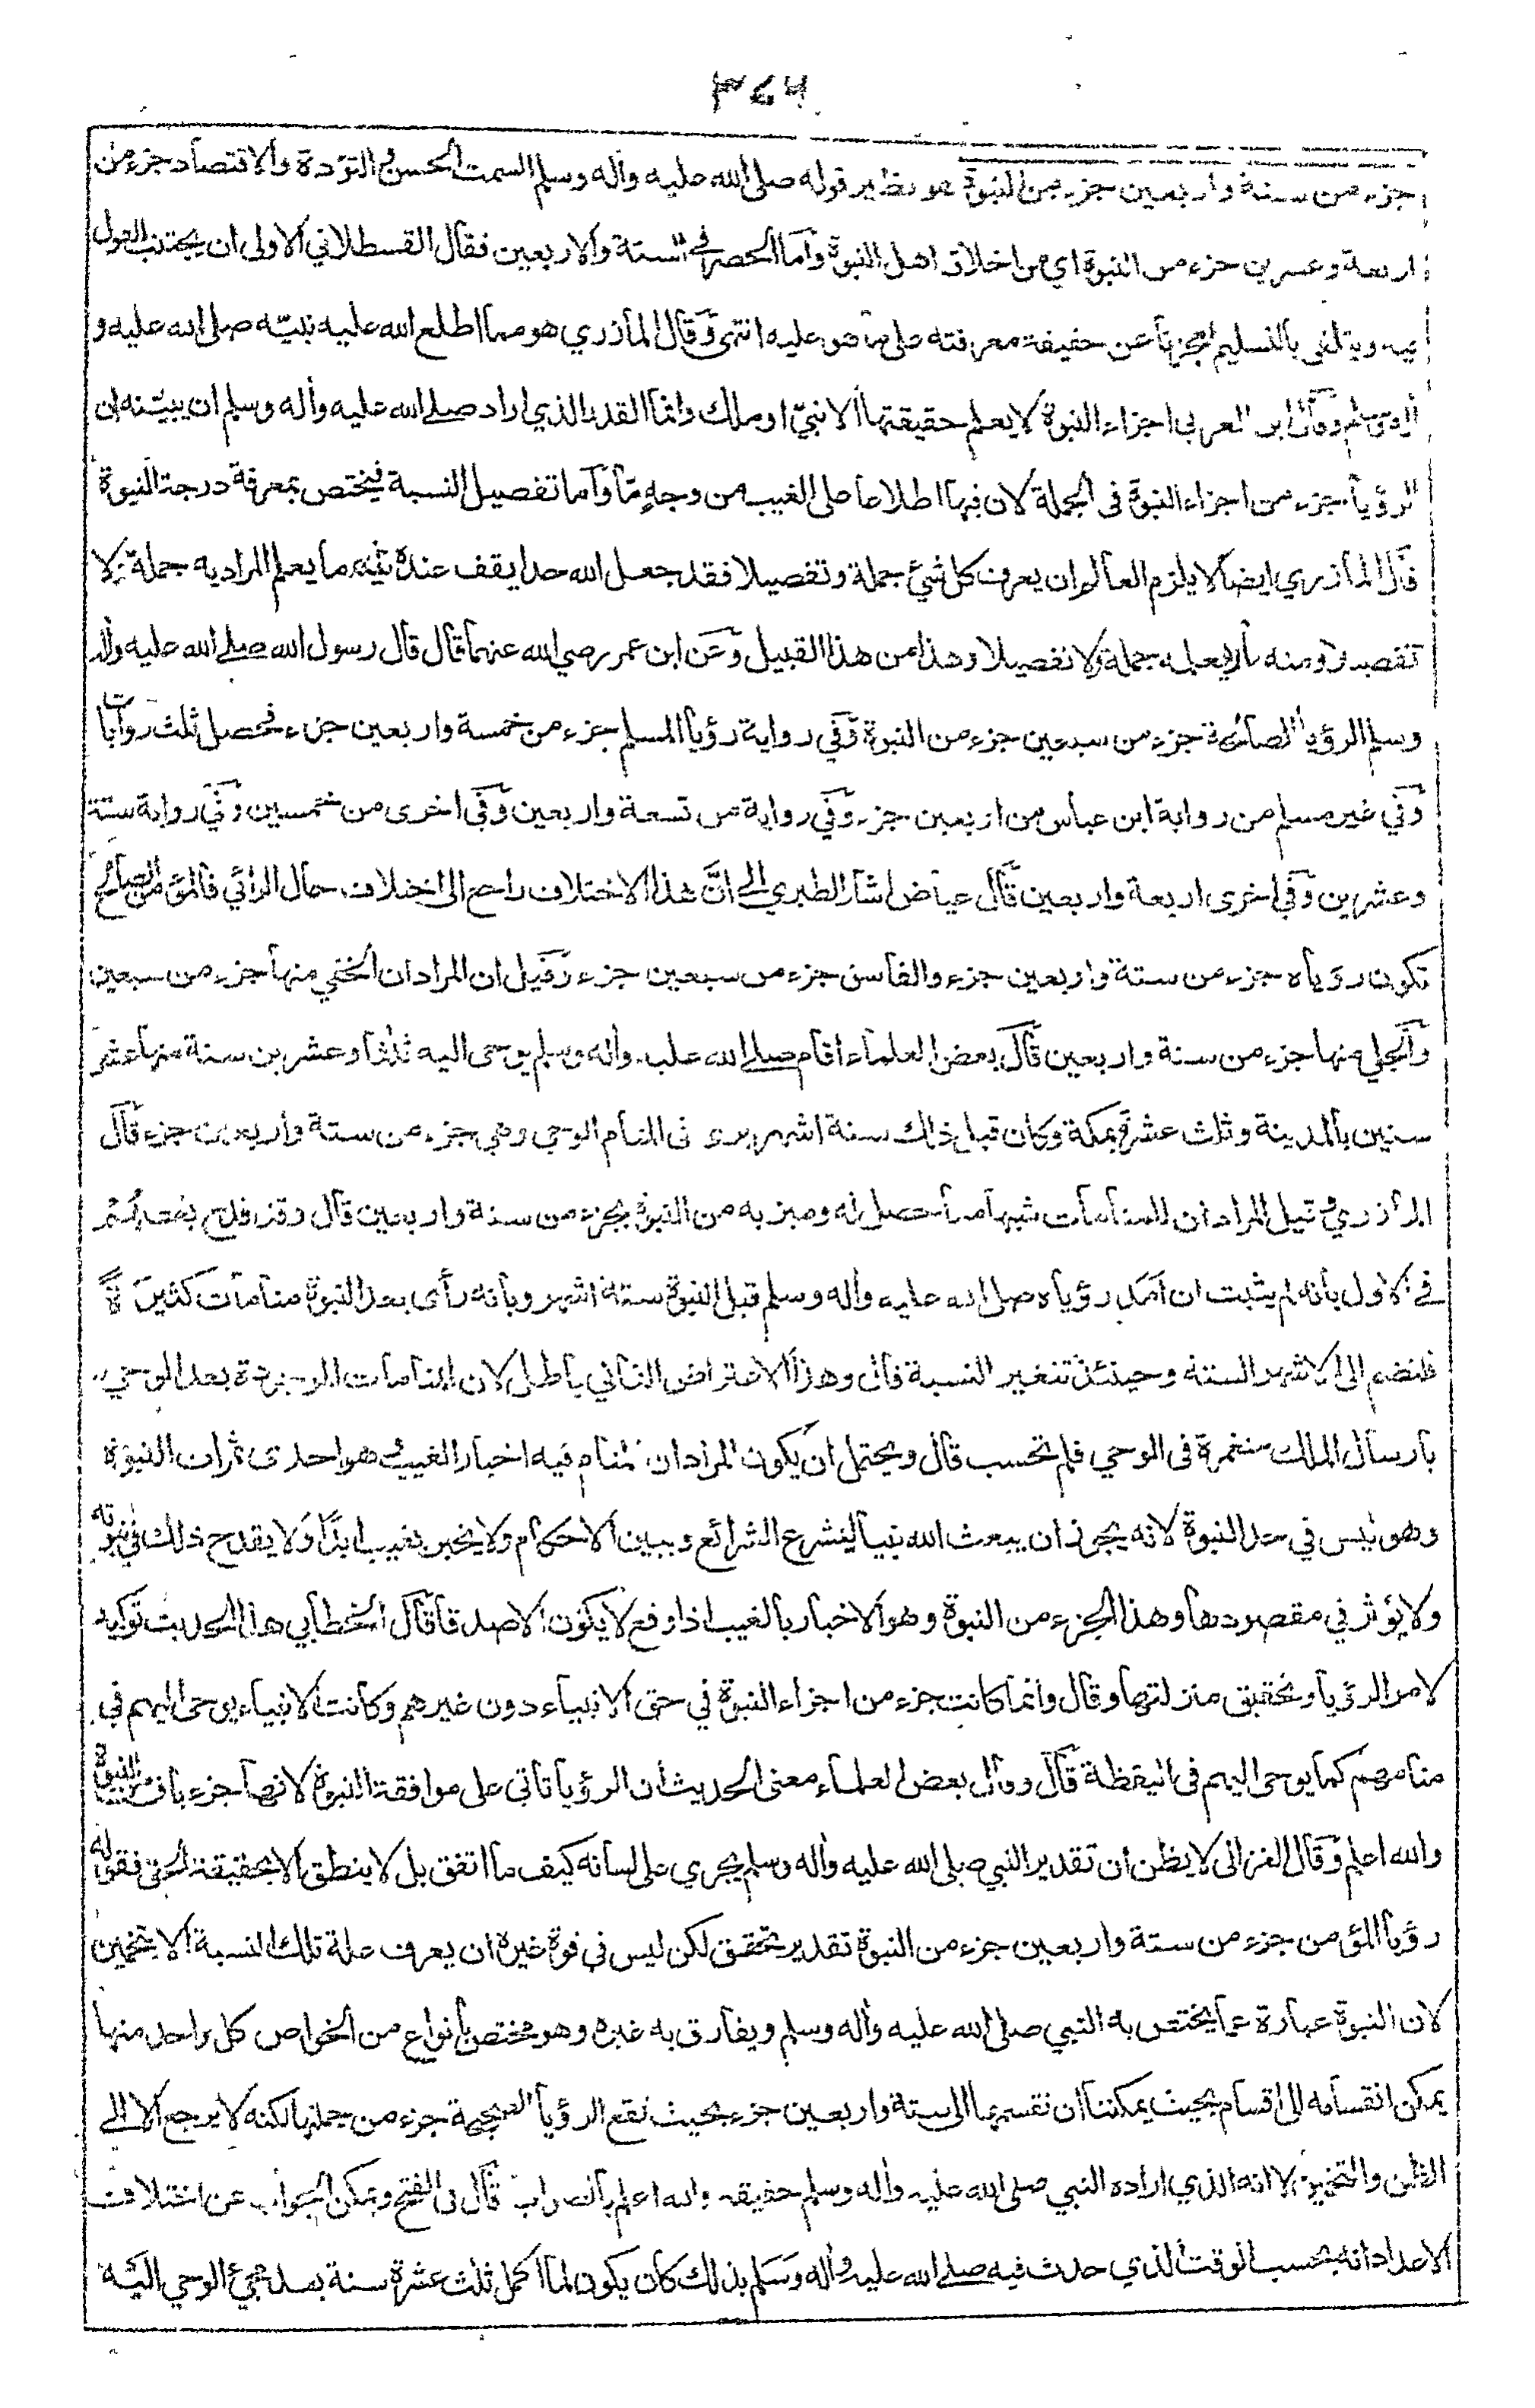 ٣٤٦
جزء من ستة واربعين جزء من النبوة هو نظير قوله صلى الله عليه وأله وسلم السمت الحسن والتؤدة والاقتصاد جزء من
اربعة وعشرين جزء من النبوة اي من اخلاق اهل النبوة وأما الحصر في الستة والاربعين فقال القسطلاني الاولى ان يجتنب القول
فيه ويتلقى بالتسليم لعجزنا عن حقيقة معرفته على ما هو عليه انتهى وقال المازري هو مما اطلع الله عليه نبيّه صلى الله عليه و
أله وسلم وقال ابن العربي اجزاء النبوة لا يعلم حقيقتها الا نبيّ او ملك وانما القدر الذي اراد صلى الله عليه وأله وسلم ان يبيّنه ان
الرؤيا جزء من اجزاء النبوة في الجملة لان فيها اطلاعا على الغيب من وجهٍ مّا وأما تفصيل النسبة فيختص بمعرفة درجة النبوة
قال المازري ايضا لا يلزم العالم ان يعرف كل شيء جملة وتفصيلا فقد جعل الله حدا يقف عنده فمنه ما يعلم المراد به جملة لا
تفصيلا ومنه ما يعلمه جملة ولا تفصيلا وهذا من هذا القبيل وعن ابن عمر رضي الله عنهما قال قال رسول الله صلى الله عليه وأله
وسلم الرؤيا الصالحة جزء من سبعين جزء من النبوة وفي رواية رؤيا المسلم جزء من خمسة واربعين جزء فحصل ثلث روايات
وفي غير مسلم من رواية ابن عباس من اربعين جزء وفي رواية من تسعة واربعين وفي اخرى من خمسين وفي رواية ستة
وعشرين وفي اخرى اربعة واربعين قال عياض اشار الطبري الى انَّ هذا الاختلاف راجع الى اختلاف حال الرائي فالمؤمن الصالح
تكون رؤياه جزء من ستة واربعين جزء والفاسق جزء من سبعين جزء وقيل ان المراد ان الخفي منها جزء من سبعين
والجلي منها جزء من ستة واربعين قال بعض العلماء اقام صلى الله عليه وأله وسلم يوحى اليه ثلثا وعشرين سنة منها عشر
سنين بالمدينة وثلث عشرة بمكة وكان قبل ذلك ستة اشهر يرى في المنام الوحي وهي جزء من ستة واربعين جزء قال
المازري وقيل المراد ان للمنامات شبها مما حصل له وميز به من النبوة بجزء من ستة واربعين قال وقد قدح بعضهم
في الاول بانه لم يثبت ان امد رؤياه صلى الله عليه وأله وسلم قبل النبوة ستة اشهر وبانه رأى بعد النبوة منامات كثيرة
فلتضم الى الاشهر الستة وحينئذ تتغير النسبة قال وهذا الاعتراض الثاني باطل لان المنامات الموجودة بعد الوحي
بارسال الملك منغمرة في الوحي فلم تحسب قال ويحتمل ان يكون المراد ان المنام فيه اخبار الغيب وهو احدى ثمرات النبوة
وهو ليس في حد النبوة لانه يجوز ان يبعث الله نبيا ليشرع الشرائع ويبين الاحكام ولا يخبر بغيب ابدًا ولا يقدح ذلك في نبوته
ولا يؤثر في مقصودها وهذا الجزء من النبوة وهو الاخبار بالغيب اذا وقع لا يكون الا صدقا قال الخطابي هذا الحديث توكيد
لامر الرؤيا وتحقيق منزلتها وقال وانما كانت جزء من اجزاء النبوة في حق الانبياء دون غيرهم وكانت الانبياء يوحى اليهم في
منامهم كما يوحى اليهم في اليقظة قال وقال بعض العلماء معنى الحديث ان الرؤيا تاتي على موافقة النبوة لانها جزء باق من النبوة
والله اعلم وقال الغزالي لا يظن ان تقدير النبي صلى الله عليه وأله وسلم يجري على لسانه كيف ما اتفق بل لا ينطق الا بحقيقة الحق فقوله
رؤيا المؤمن جزء من ستة واربعين جزء من النبوة تقدير تحقق لكن ليس في قوة غيره ان يعرف علة تلك النسبة الا بتخمين
لان النبوة عبارة عما يختص به النبي صلى الله عليه وأله وسلم ويفارق به غيره وهو مختص بأنواع من الخواص كل واحد منها
يمكن انقسامه الى اقسام بحيث يمكننا ان نقسمها الى ستة واربعين جزء بحيث تقع الرؤيا الصحيحة جزء من جملتها لكنه لا يرجع الا الى
الظن والتخمين لا انه الذي اراده النبي صلى الله عليه وأله وسلم حقيقة والله اعلم بالصواب قال في الفتح ويمكن الجواب عن اختلاف
الاعداد انه بحسب الوقت الذي حدث فيه صلى الله عليه وأله وسلم بذلك كأن يكون لما اكمل ثلث عشرة سنة بعد مجئ الوحي اليه